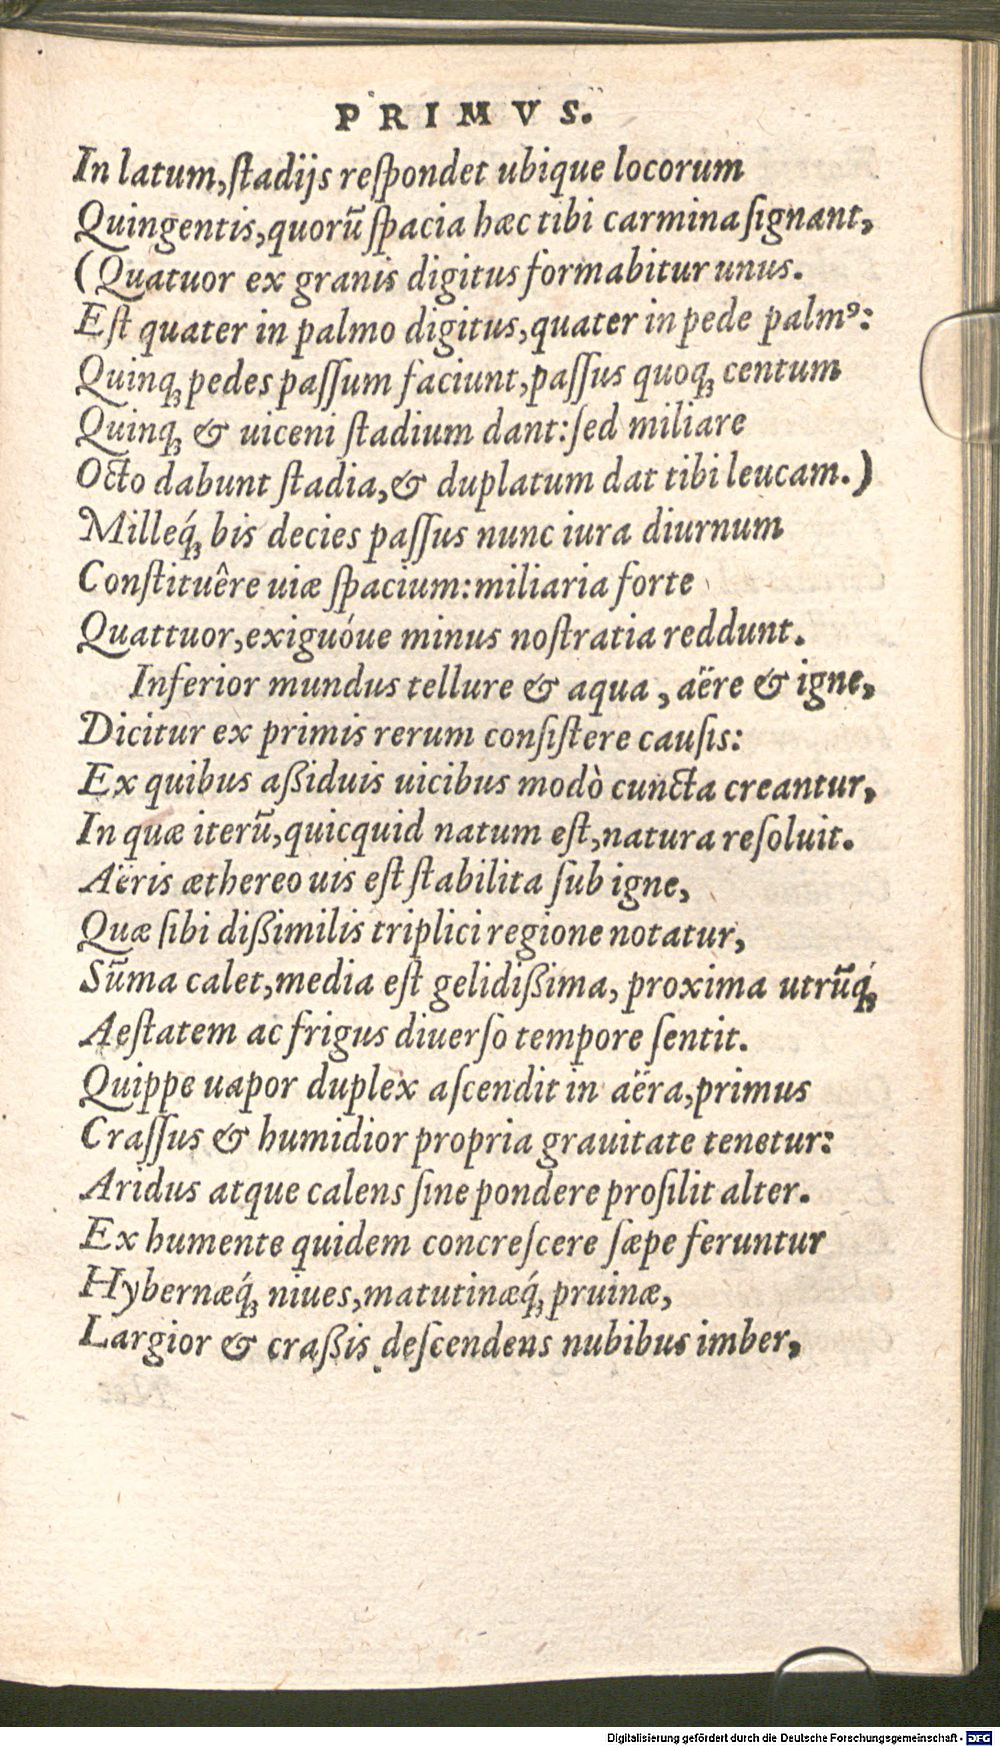 PRIMVS.
In latum, ſtadijs reſpondet ubique locorum
Quingentis, quorũ ſpacia hæc tibi carmina ſignant,
(Quatuor ex granis digitus formabitur unus.
Eſt quater in palmo digitus, quater in pede palmꝰ:
Quinq́ꝫ pedes paſſum faciunt, paſſus quoqꝫ centum
Quinqꝫ & uiceni ſtadium dant: ſed miliare
Octo dabunt ſtadia, & duplatum dat tibi leucam.)
Milleq́ꝫ bis decies paſſus nunc iura diurnum
Conſtituêre uiæ ſpacium: miliaria forte
Quattuor, exiguóue minus noſtratia reddunt.
Inferior mundus tellure & aqua, aëre & igne,
Dicitur ex primis rerum conſiſtere cauſis:
Ex quibus aßiduis uicibus modò cuncta creantur,
In quæ iterũ, quicquid natum eſt, natura reſoluit.
Aëris æthereo uis eſt ſtabilita ſub igne,
Quæ ſibi dißimilis triplici regione notatur,
Sũma calet, media eſt gelidißima, proxima utrũq́ꝫ
Aeſtatem ac frigus diuerſo tempore ſentit.
Quippe uapor duplex aſcendit in aëra, primus
Craſſus & humidior propria grauitate tenetur:
Aridus atque calens ſine pondere proſilit alter.
Ex humente quidem concreſcere ſæpe feruntur
Hybernæq́ꝫ niues, matutinæq́ꝫ pruinæ,
Largior & craßis deſcendens nubibus imber,
Digitalisierung gefördert durch die Deutsche Forschungsgemeinschaft - DFG